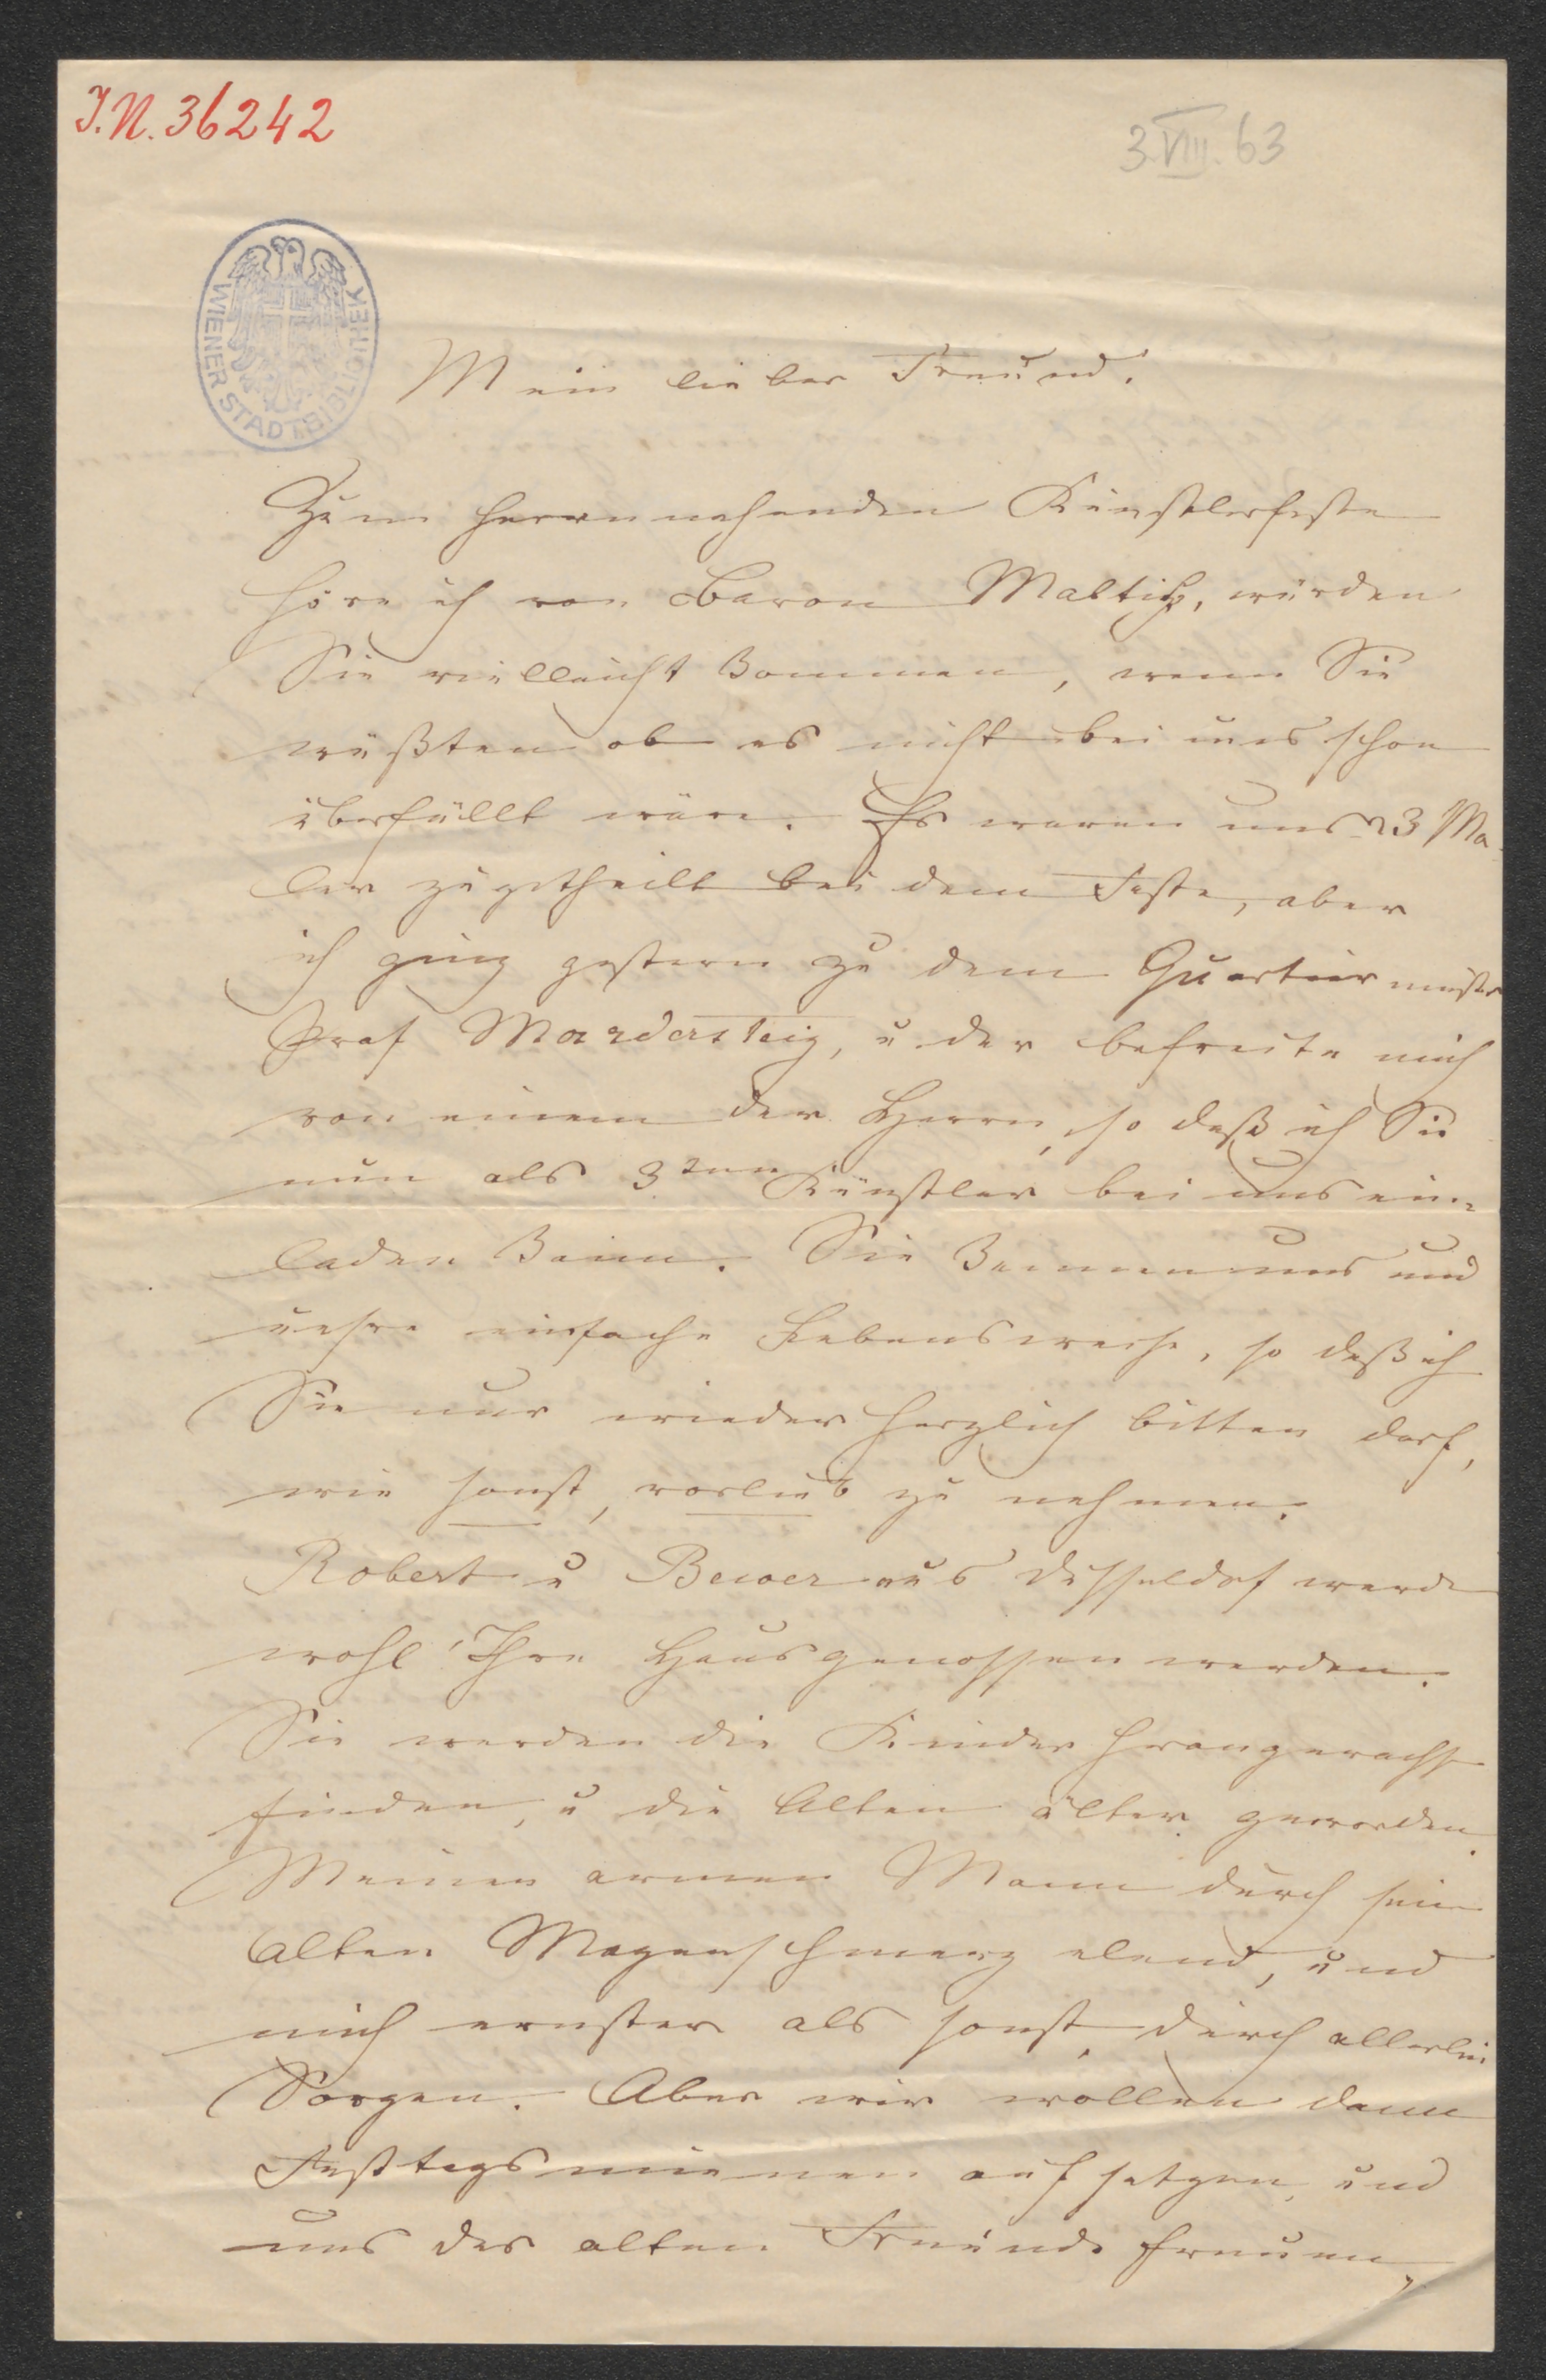 J.N. 36242
3.VIII.63
WIENER STADT.BIBLIOTHEK
Mein lieber Freund.
Zum herannahenden Künstlerfeste
höre ich von Baron Maltitz, würden
Sie vielleicht kommen, wenn Sie
wüßten ob es nicht bei uns schon
überfüllt wäre. Es waren uns 3 Ma-
ler zugetheilt bei dem Feste, aber
ich ging gestern zu dem Quartiermeister
Graf Mardersteig, u der befreite mich
von einem der Herrn, so daß ich Sie
nun als 3ten Künstler bei uns ein-
laden kann. Sie kennen uns und
unsre einfache Lebensweise, so daß ich
Sie nur wieder herzlich bitten darf,
wie sonst, vorlieb zu nehmen.
Robert u Bewer aus Düsseldorf werden
wohl Ihre Hausgenossen werden.
Sie werden die Kinder herangewachsen
finden, u die Alten älter geworden.
Meinen armen Mann durch seinen
alten Magenschmerz elend, und
mich ernster als sonst, durch allerlei
Sorgen. Aber wir wollen dann
Festtagsmienen aufsetzen, und
uns des alten Freundes freuen,